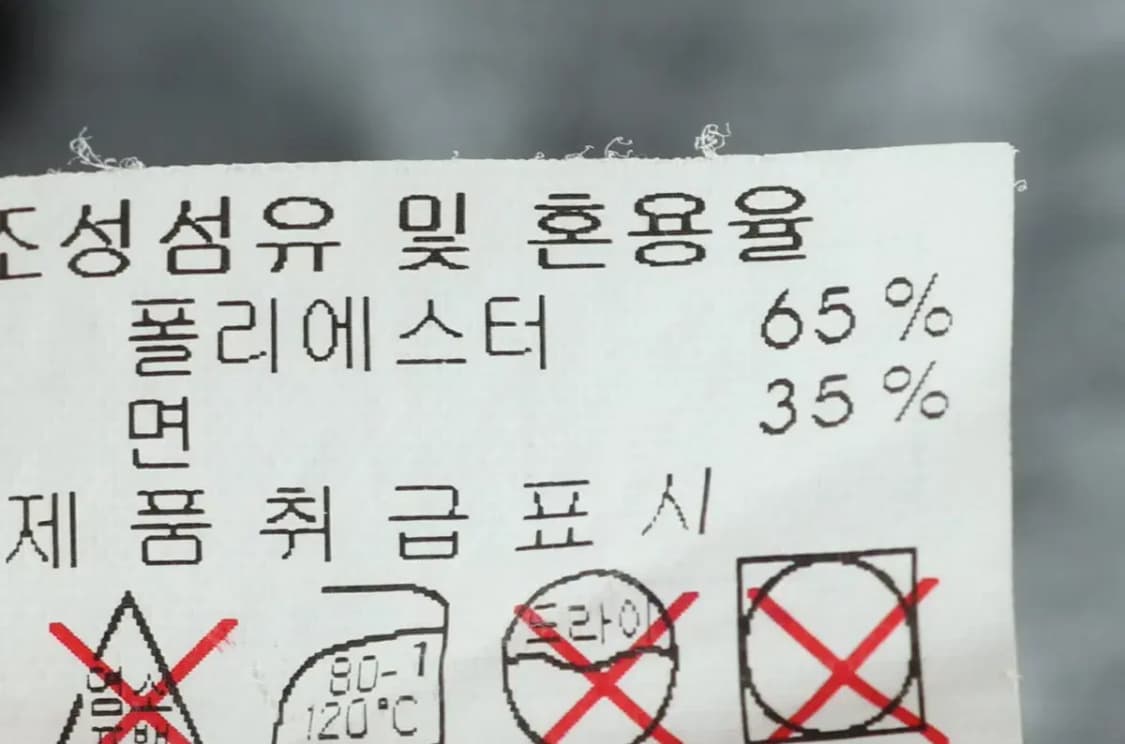 조성섬유 및 혼용율
폴리에스터 65%
면 35%
제품취급표시
80-1
120°C
드라이